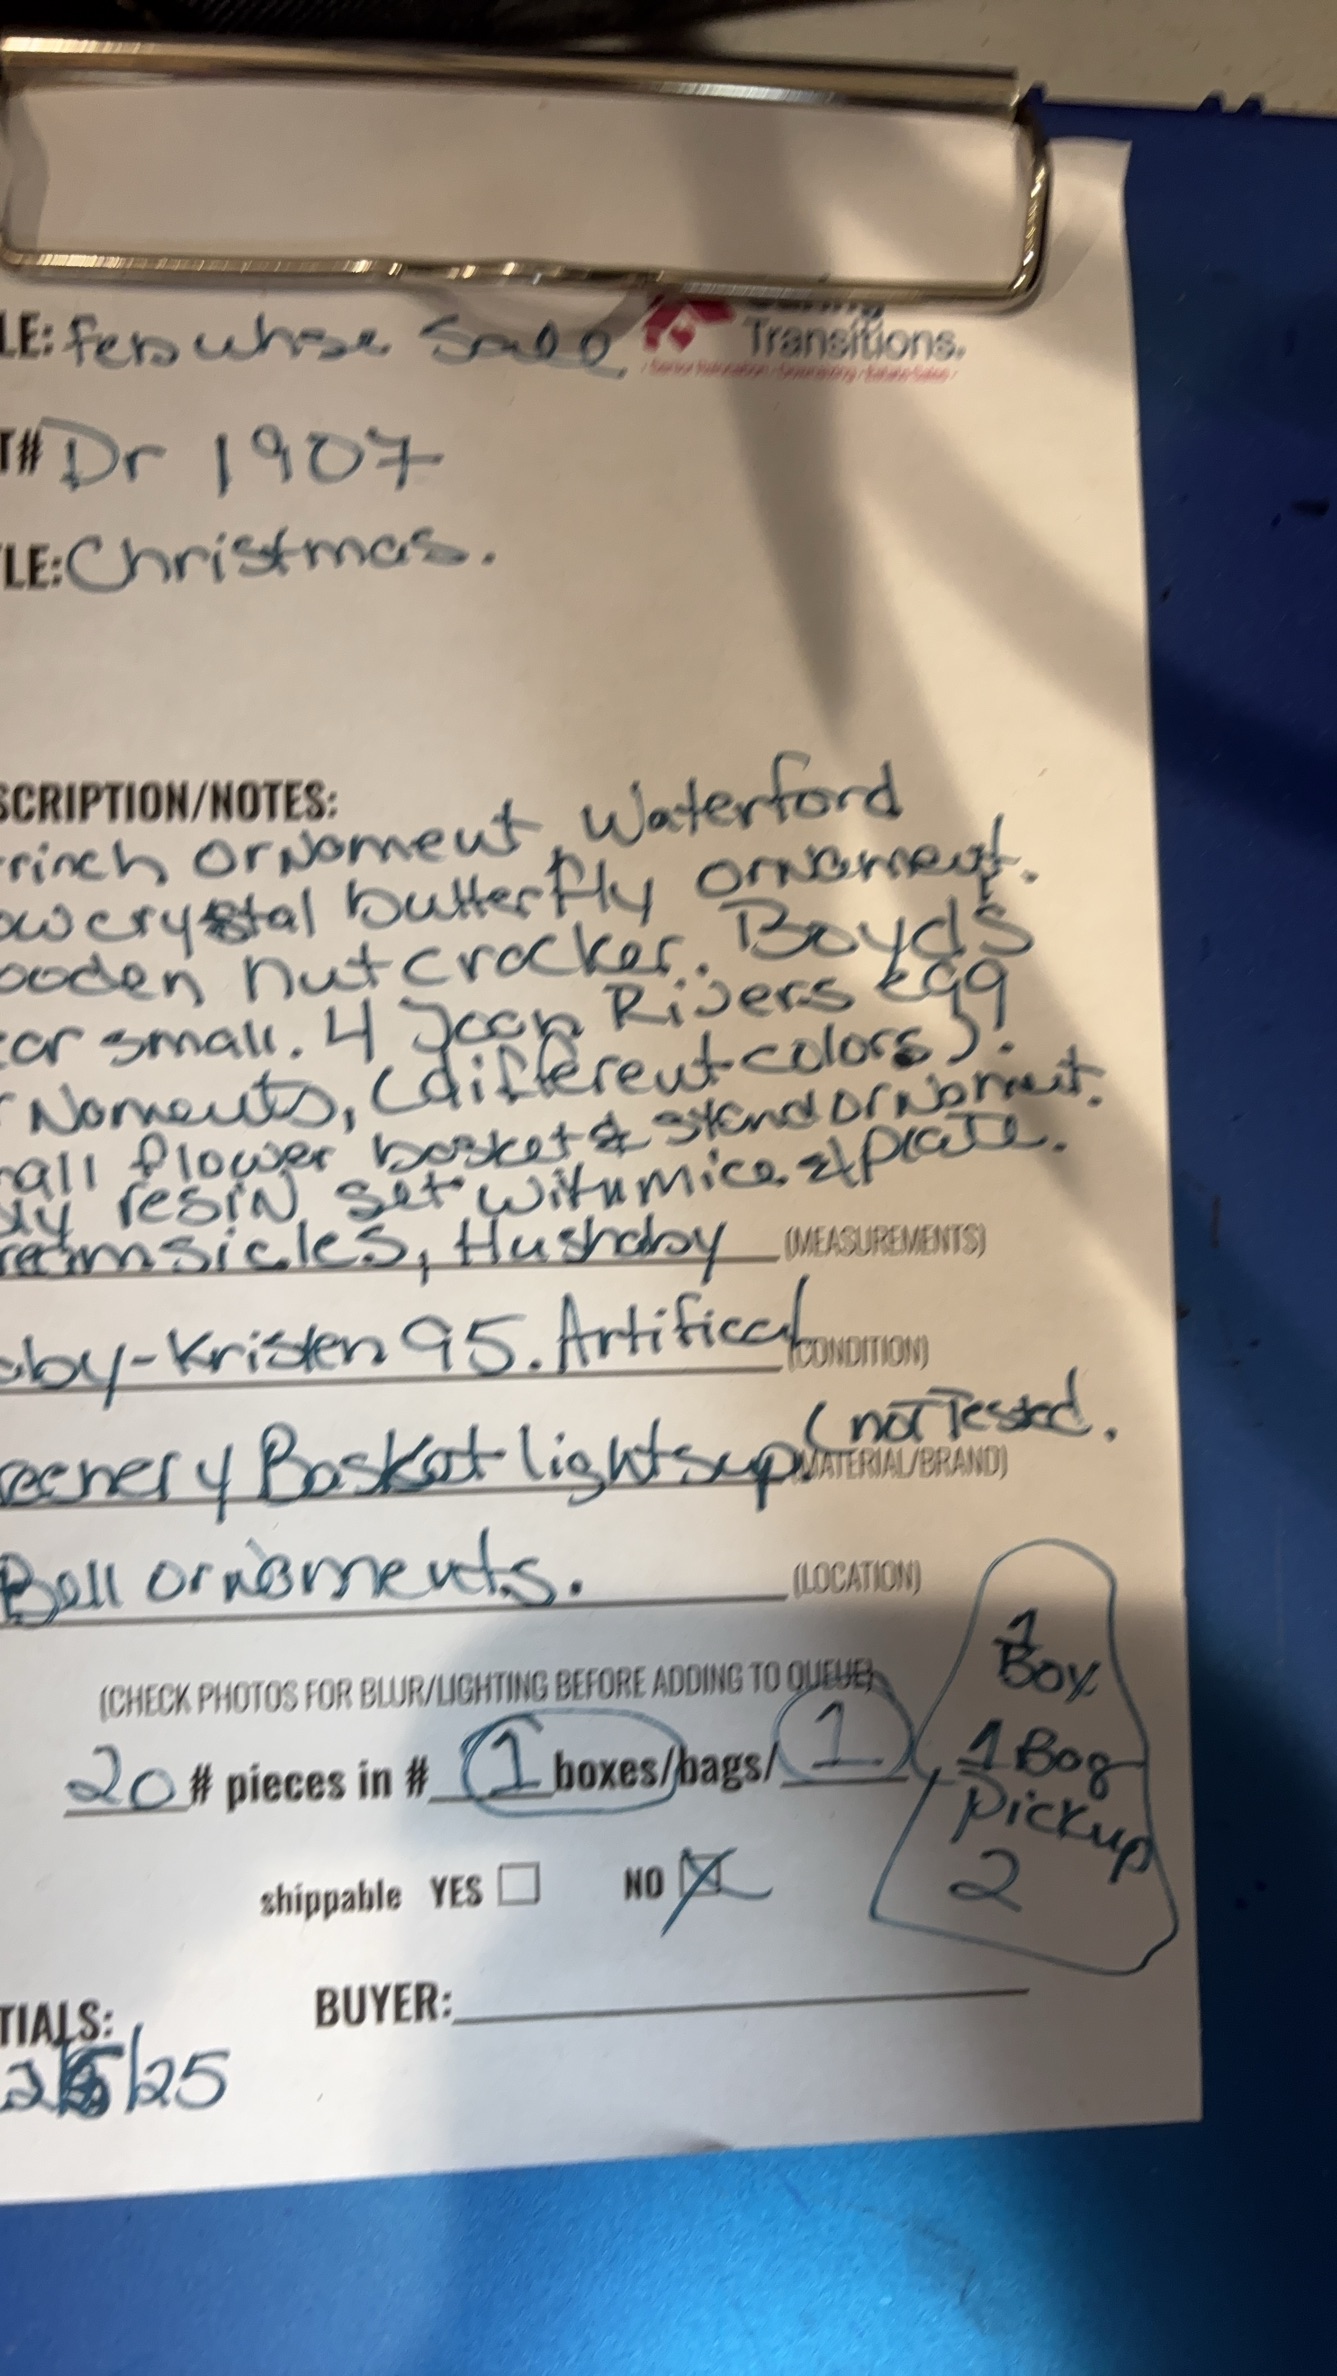 LE: Feb whse Sale
Transitions.
T# Dr 1907
LE: Christmas.
SCRIPTION/NOTES:
rinch Ornoment Waterford
ow crystal butterfly ornament.
ooden nutcracker. Boyds
ear small. 4 Joan Rivers egg
r Noments, (different colors).
all flower basket & stand or Noment.
resin set with mice & plate.
reamsicles, Hushaby (MEASUREMENTS)
aby-Kristen 95. Artifical (CONDITION)
(not Tested.
eenery Basket lights up. (MATERIAL/BRAND)
Bell ornaments. (LOCATION)
(CHECK PHOTOS FOR BLUR/LIGHTING BEFORE ADDING TO QUEUE)
20 # pieces in # 1 boxes/bags/ 1
1
Box
1 Bag
Pickup
2
shippable YES NO
TIALS: BUYER:
/25